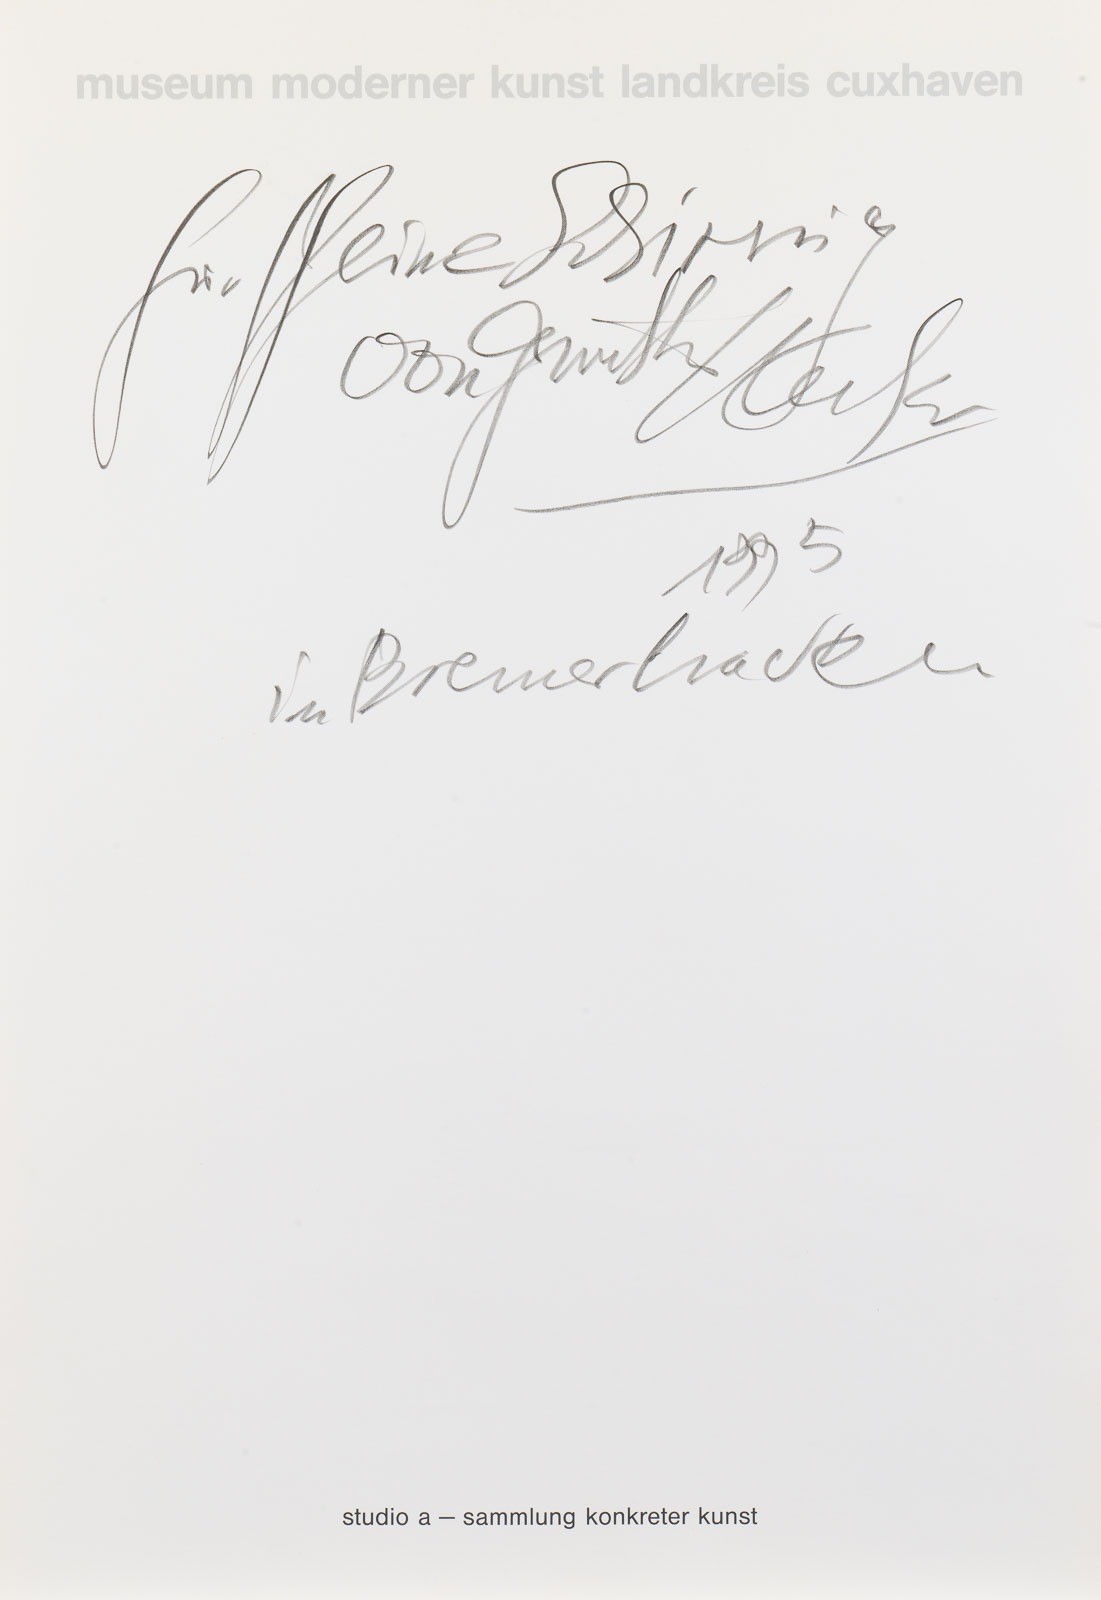 museum moderner kunst landkreis cuxhaven
für Heine Schipping
von Günther Uecker
1995
in Bremerhaven
studio a – sammlung konkreter kunst